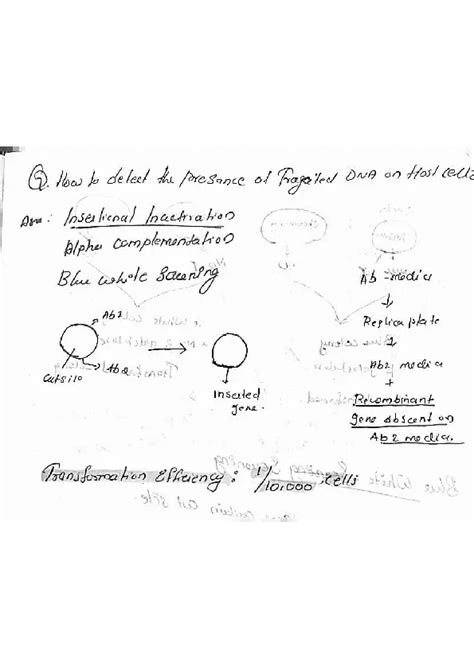 Q. How to detect the presance of Fragated DNA on Host cells
Ans: Insertional Inactivation
Alpha complementation
Blue White Screening
Ab-media
Replica plate
Ab2 media
Recombinant
gene abscent on
Ab2 media.
Ab2
Ab2
Inserted
gene.
Transformation Efficiency : 1/10,000 cells